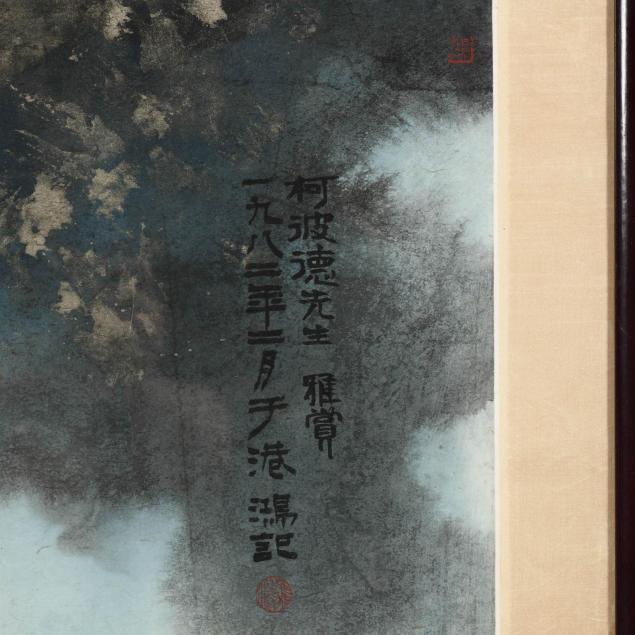 柯波德先生 雅賞
一九八二年二月于港 鴻記